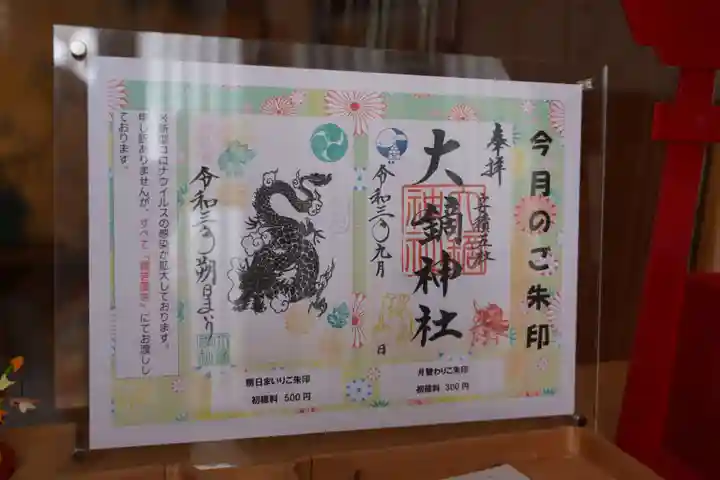 今月のご朱印
奉拝
大鏑神社
令和三年九月
日
月替わりご朱印
初穂料 300円
令和三年朔日まいり
朔日まいりご朱印
初穂料 500円
※新型コロナウイルスの感染が拡大しております。
申し訳ありませんが、すべて「
」にてお渡しし
ております。